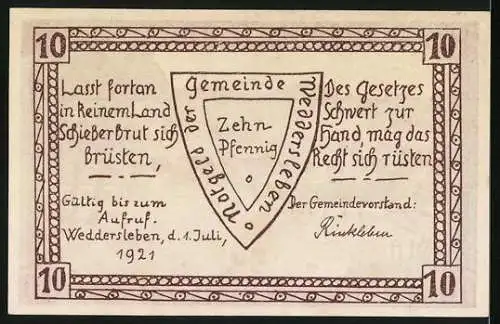 10
10
Lasst fortan
in keinem Land
Schieberbrut sich
brüsten,
Gemeinde
Weddersleben
Notgeld der
Zehn
Pfennig
Des Gesetzes
Schwert zur
Hand, mag das
Recht sich rüsten.
Gültig bis zum
Aufruf.
Weddersleben, d. 1. Juli,
1921
Der Gemeindevorstand:
Rinkleben
10
10